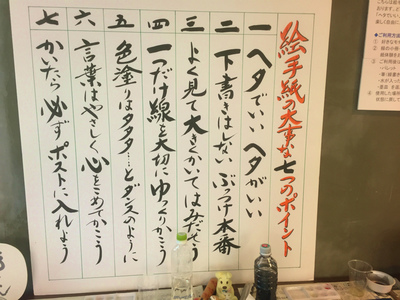 絵手紙の大事な七つのポイント
一 ヘタでいい ヘタがいい
二 下書きはしない ぶっつけ本番
三 よく見て大きくかいてはみだそう
四 一つだけ線を大切にゆっくりかこう
五 色塗りはタタタ…とダンスのように
六 言葉はやさしく心をこめてかこう
七 かいたら必ずポストに入れよう